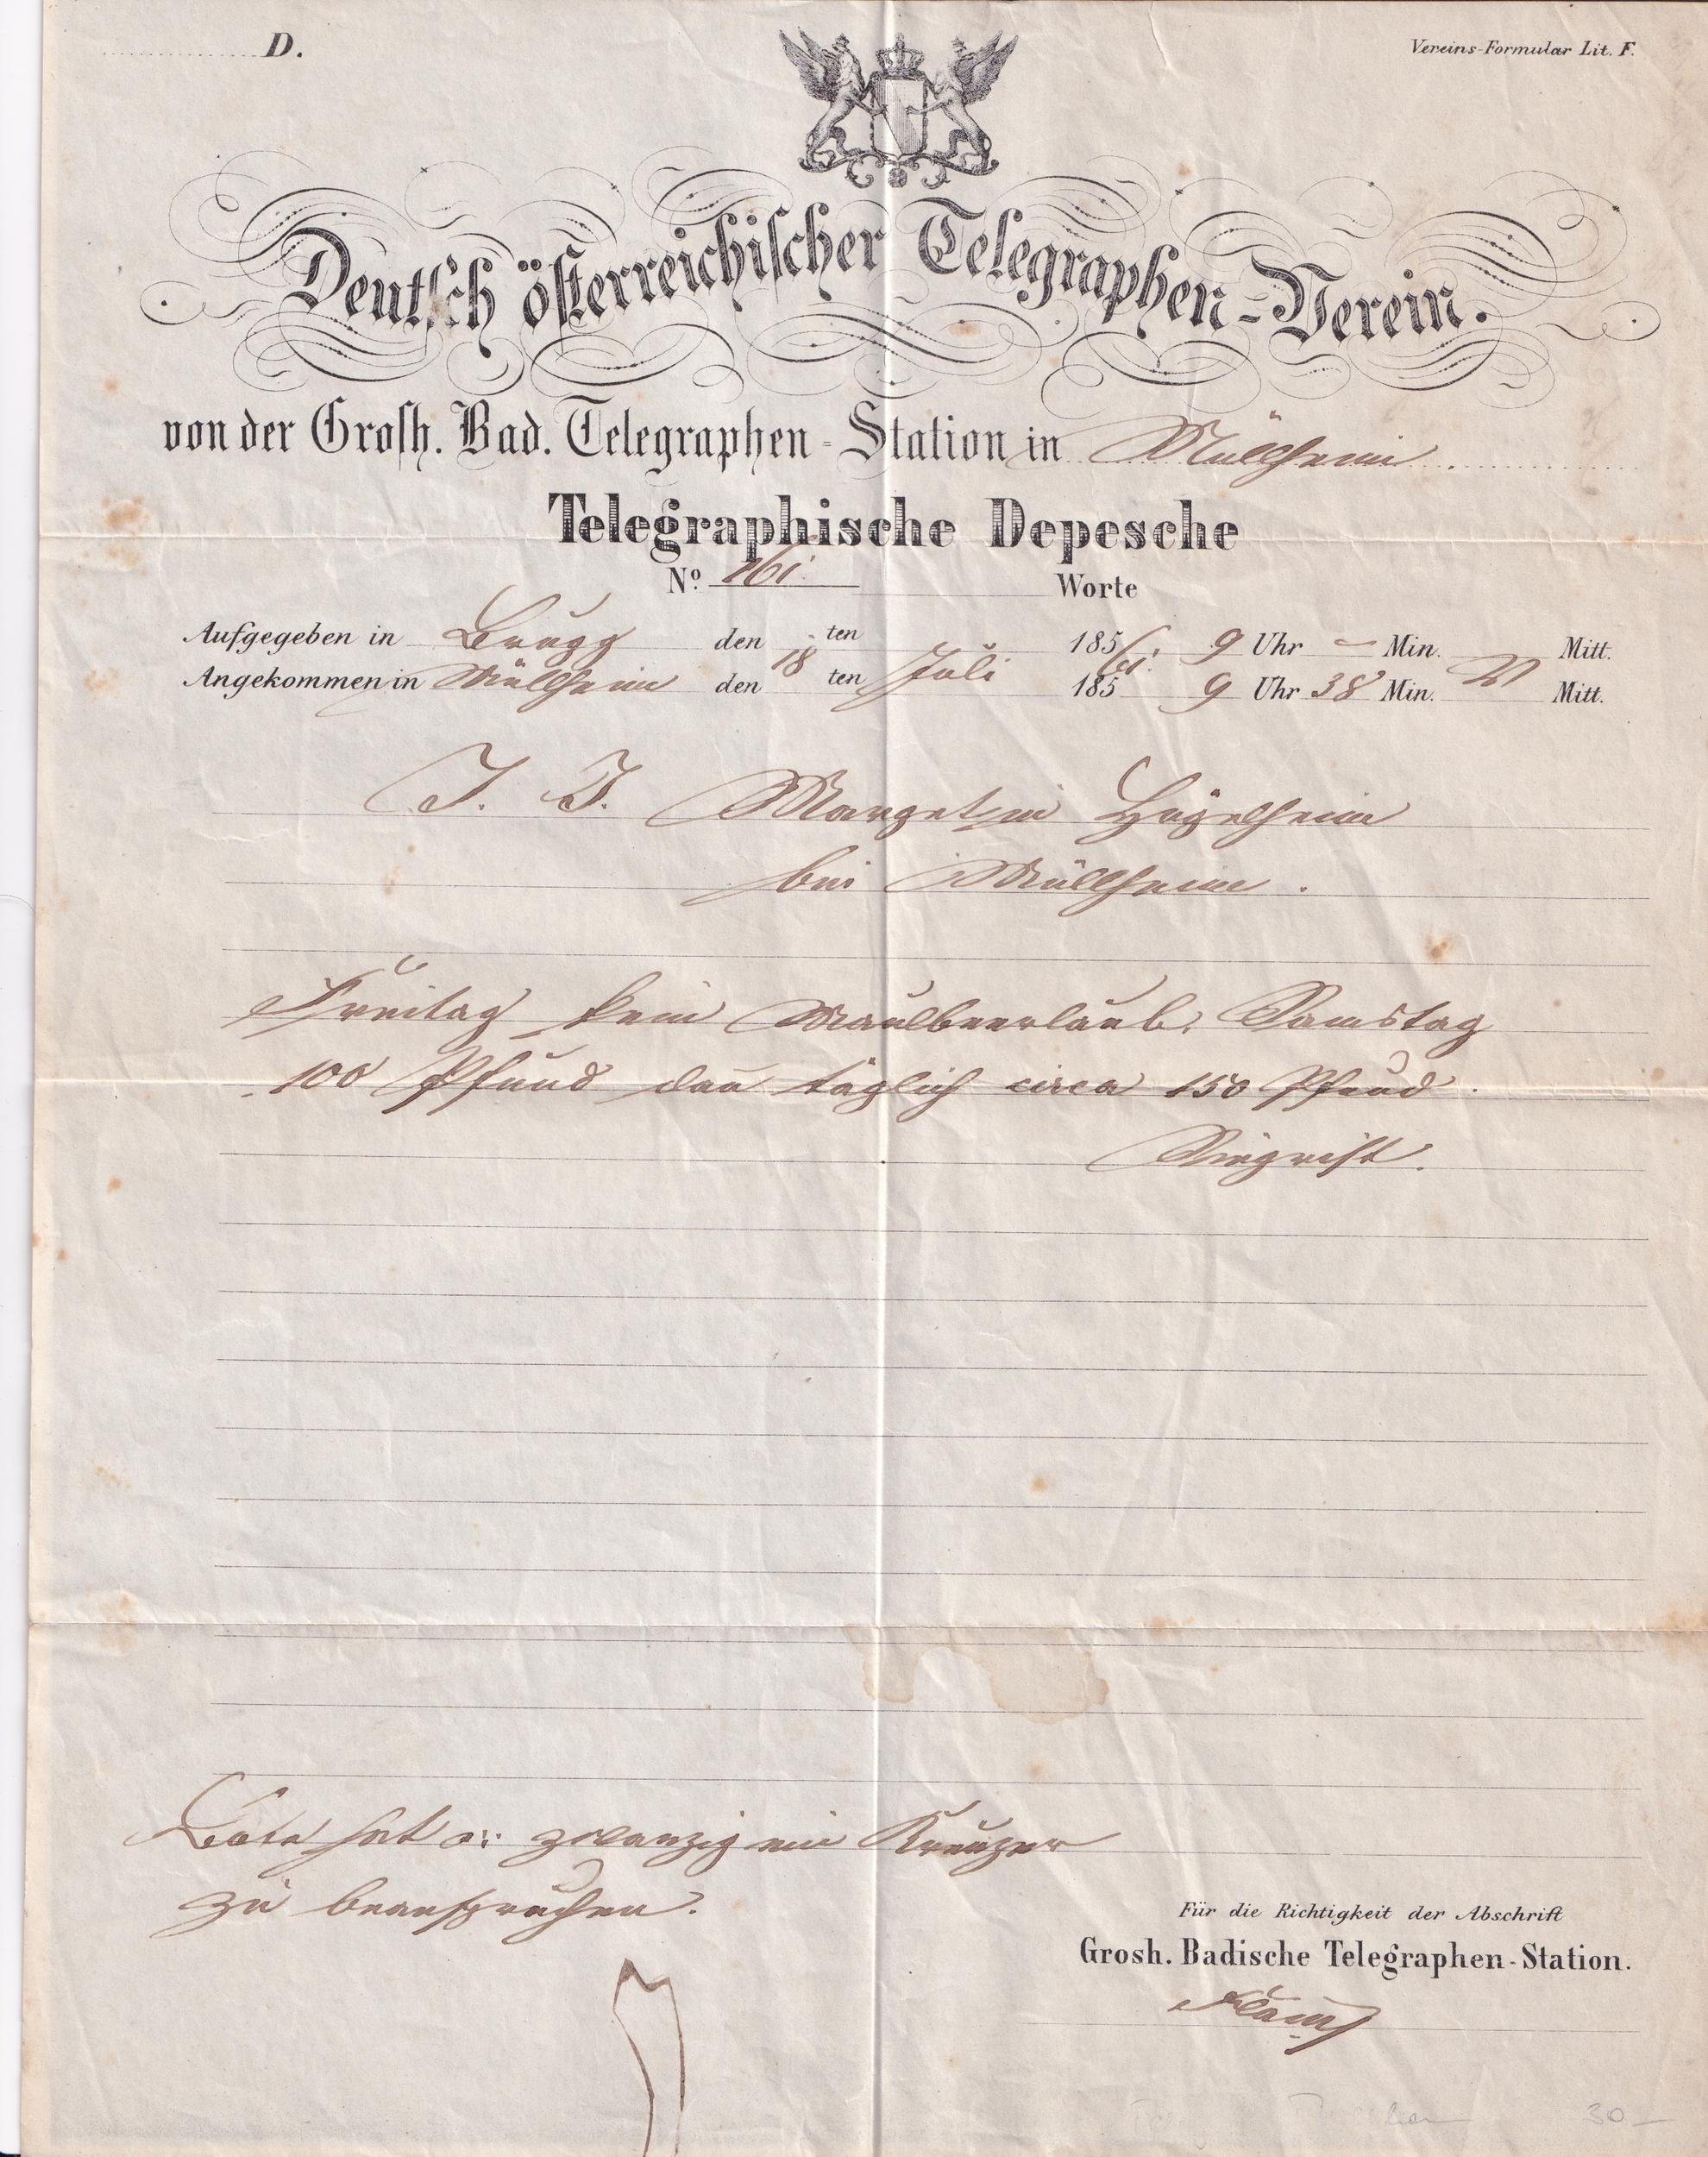 D.
Vereins-Formular Lit. F.
Deutsch österreichischer Telegraphen-Verein.
von der Grosh. Bad. Telegraphen-Station in Müllheim
Telegraphische Depesche
No. 161. Worte
Aufgegeben in Brugg den ten 185 9 Uhr – Min. Mitt.
Angekommen in Müllheim den 18 ten Juli 185 61. 9 Uhr 38 Min. V Mitt.
J. J. Marget in Hügelheim
bei Müllheim.
Freitag kein Maulbeerlaub, Samstag
100 Pfund dan̄ täglich circa 150 Pfund.
Siegrist.
Bote hat zwanzig ein Kreuzer
zu beanspruchen.
Für die Richtigkeit der Abschrift
Grosh. Badische Telegraphen-Station.
30 –